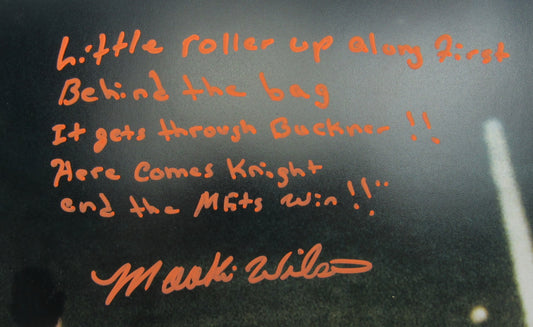 Little roller up along First
Behind the bag
It gets through Buckner!!
Here Comes Knight
and the Mets win!!
Mookie Wilson